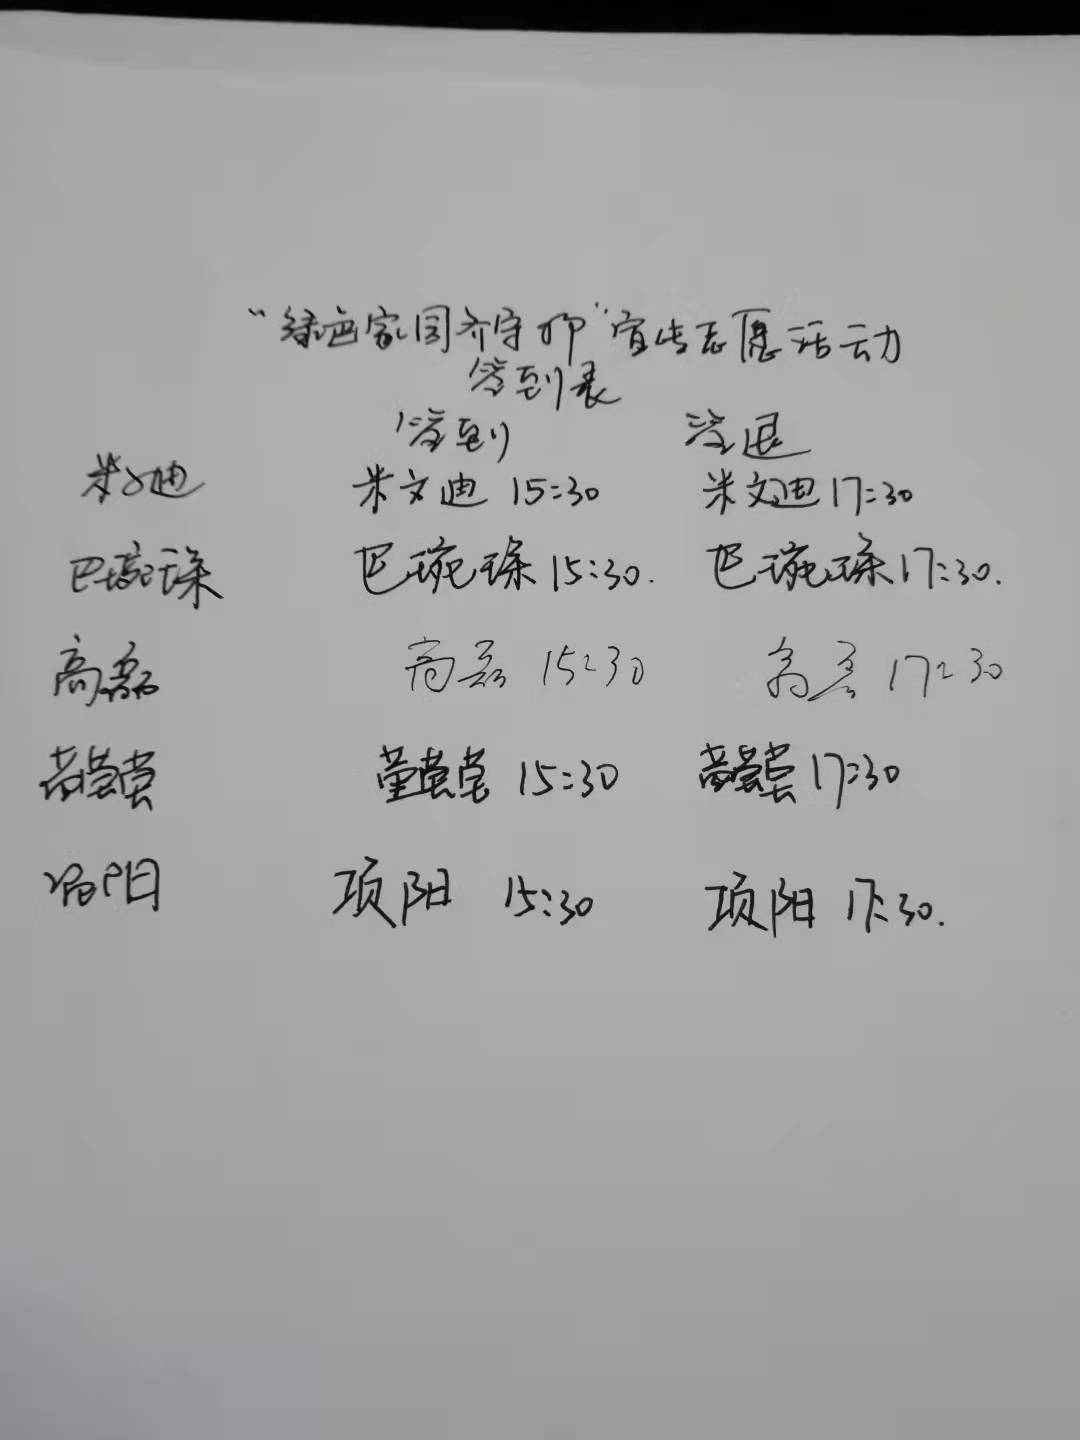 “绿色家园齐守护”宣传志愿活动
签到表
签到 签退
米文迪 米文迪 15:30 米文迪 17:30
巴琬琛 巴琬琛 15:30. 巴琬琛 17:30.
高磊 高磊 15:30 高磊 17:30
董莹莹 董莹莹 15:30 董莹莹 17:30
项阳 项阳 15:30 项阳 17:30.